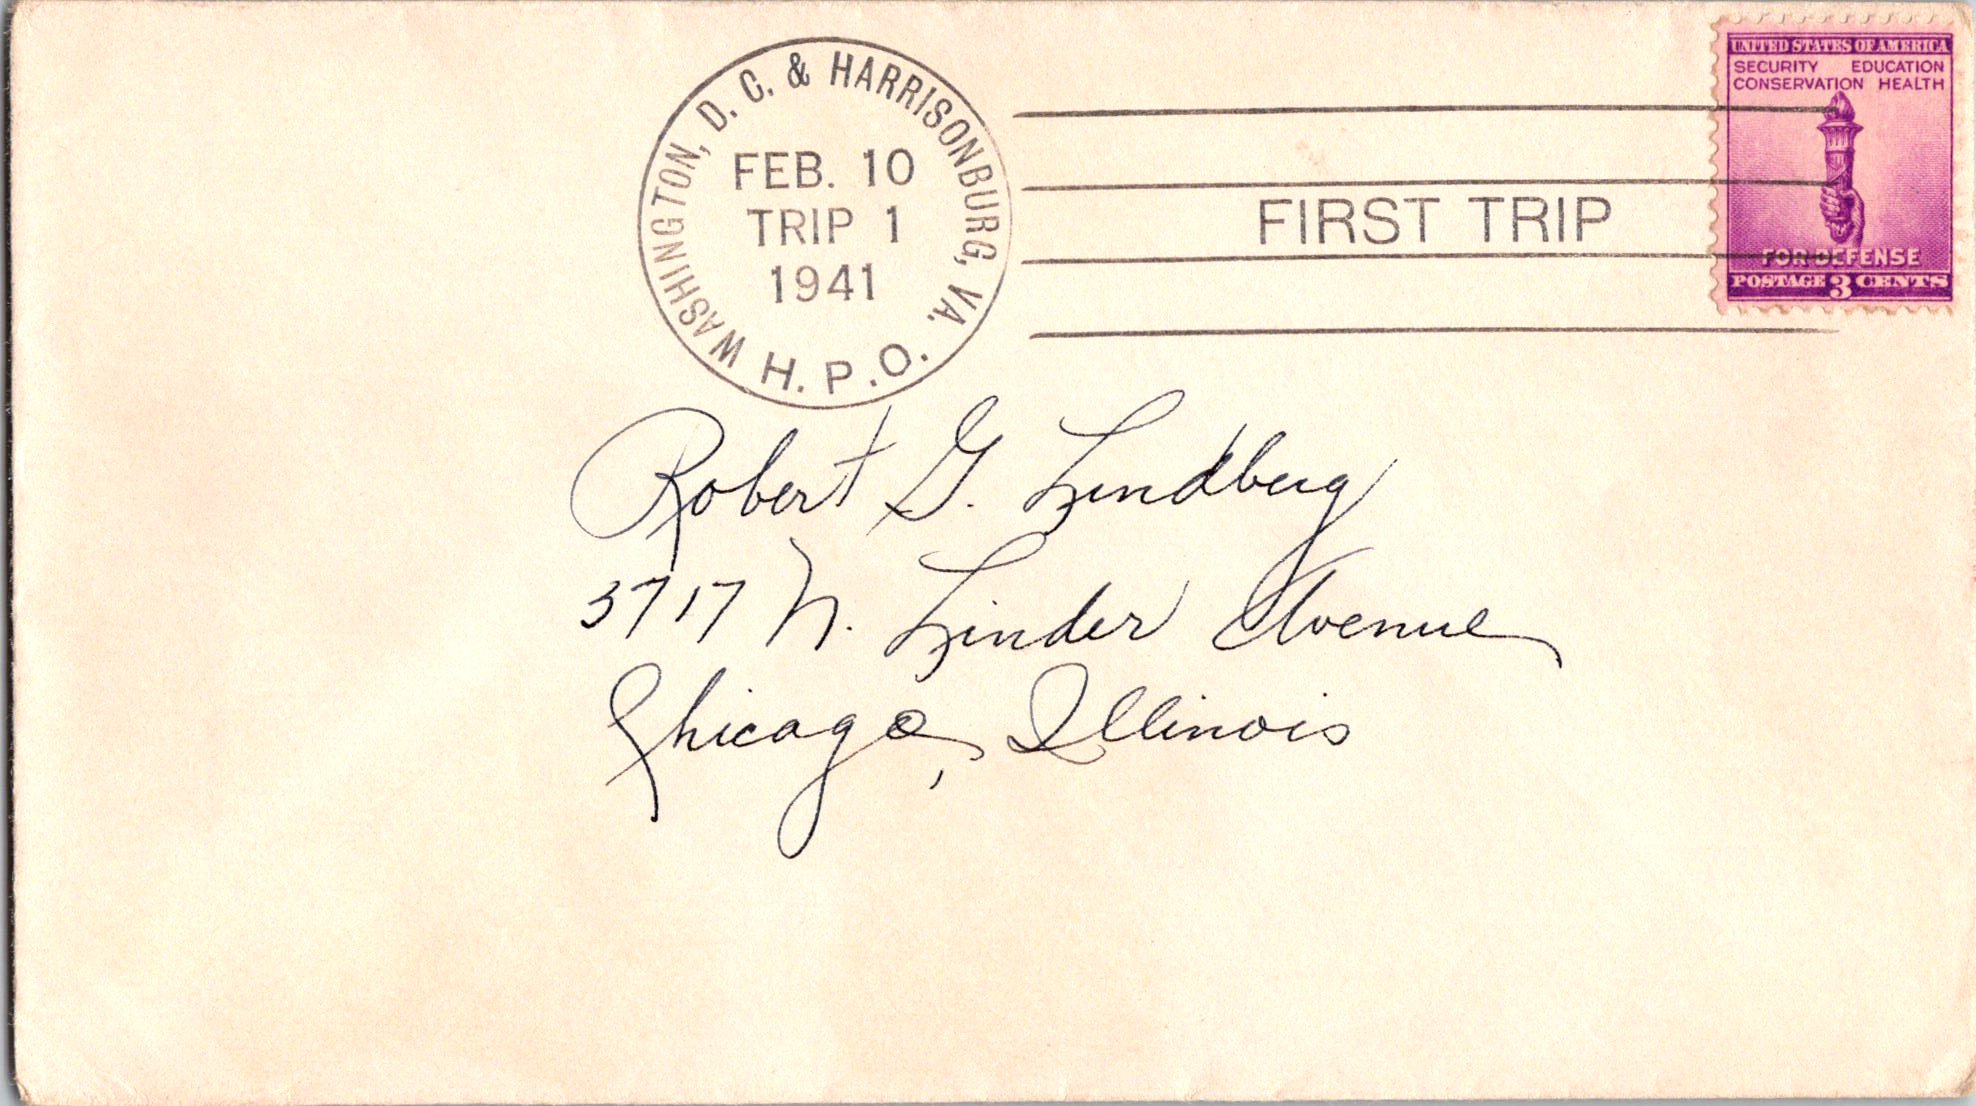 WASHINGTON, D. C. & HARRISONBURG, VA.
FEB. 10
TRIP 1
1941
H.P.O.
FIRST TRIP
UNITED STATES OF AMERICA
SECURITY EDUCATION
CONSERVATION HEALTH
FOR DEFENSE
POSTAGE 3 CENTS
Robert G. Lindberg
3717 N. Linder Avenue
Chicago, Illinois